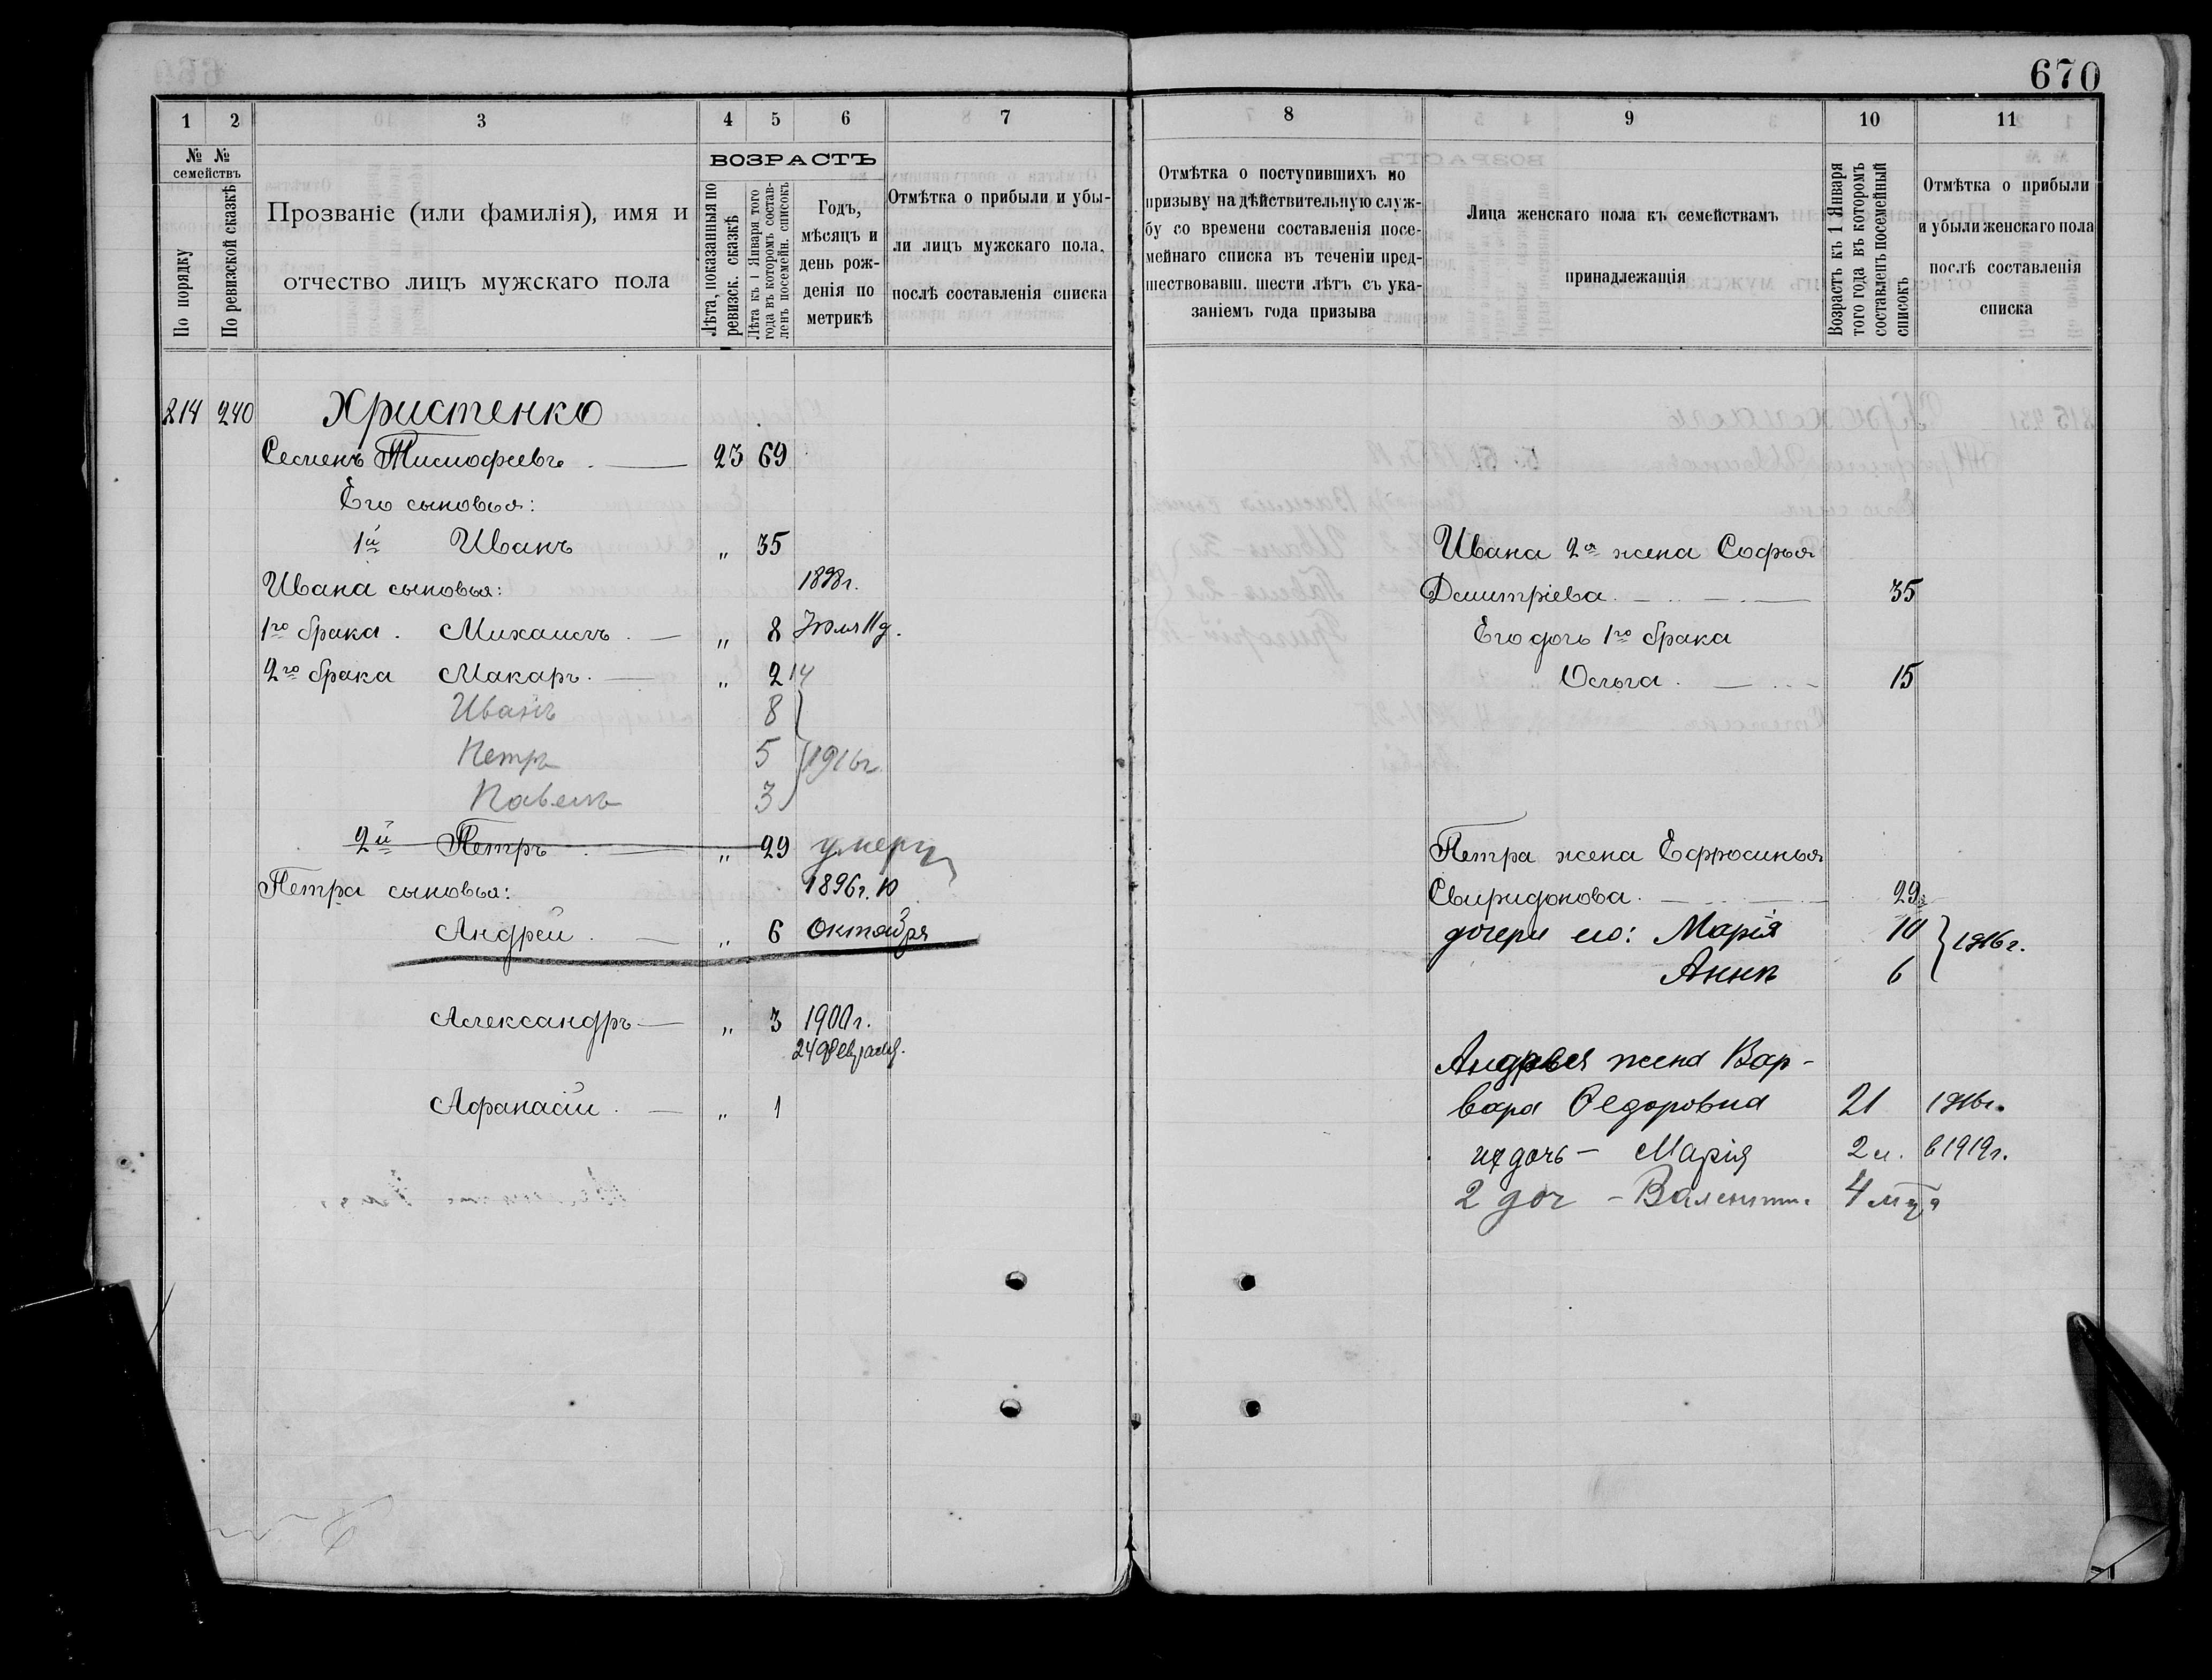 670
1 2 3 4 5 6 7
№ № семействъ
По порядку
По ревизской сказкѣ
Прозваніе (или фамилія), имя и
отчество лицъ мужскаго пола
ВОЗРАСТЪ
Лѣта, показанныя по
ревизск. сказкѣ
Лѣта къ 1 Января того
года въ которомъ состав-
ленъ посемейн. списокъ
Годъ,
мѣсяцъ и
день рож-
денія по
метрикѣ
Отмѣтка о прибыли и убы-
ли лицъ мужскаго пола,
послѣ составленія списка
214 240 Христенко
Семенъ Тимофеевъ 23 69
Его сыновья:
1й Иванъ „ 35
Ивана сыновья: 1898г.
1го брака. Михаилъ „ 8 Іюля 11д.
2го брака Макаръ „ 2 14
Иванъ 8
Петръ 5 1916г
Павелъ 3
2й Петръ „ 29 умеръ
Петра сыновья: 1896г. 10
Андрей „ 6 Октября
Александръ „ 3 1900г.
24 Февраля.
Афанасій „ 1
8 9 10 11
Отмѣтка о поступившихъ по
призыву на дѣйствительную служ-
бу со времени составленія посе-
мейнаго списка въ теченіи пред-
шествовавш. шести лѣтъ съ ука-
заніемъ года призыва
Лица женскаго пола къ семействамъ
принадлежащія
Возрастъ къ 1 Января
того года въ которомъ
составленъ посемейный
списокъ
Отмѣтка о прибыли
и убыли женскаго пола
послѣ составленія
списка
Ивана 2я жена Софья
Дмитріева 35
Его дочь 1го брака
Ольга 15
Петра жена Ефросинья
Свиридонова 29
дочери его: Марія 10 1916г.
Анна 6
Андрея жена Вар-
вара Федоровна 21 1916г.
их дочь – Марія 2 м. в 1919г.
2 доч – Валентин. 4 м-ця